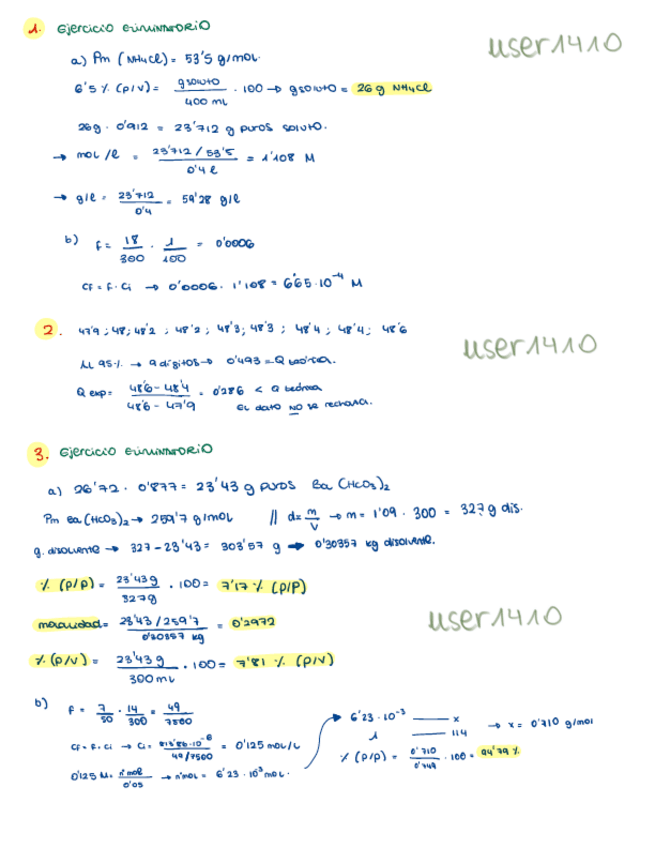 1. Ejercicio Eliminatorio
user1410
a) Pm (NH4Cl) = 53'5 g/mol.
6'5 % (p/v) = g soluto / 400 mL · 100 → g soluto = 26 g NH4Cl
26g · 0'912 = 23'712 g puros soluto.
→ mol/l = 23'712 / 53'5 / 0'4 l = 1'108 M
→ g/l = 23'712 / 0'4 = 59'28 g/l
b) f = 18/300 · 1/100 = 0'0006
Cf = f · Ci → 0'0006 · 1'108 = 6'65·10⁻⁴ M
2. 47'9 ; 48 ; 48'2 ; 48'2 ; 48'3 ; 48'3 ; 48'4 ; 48'4 ; 48'6
user1410
Al 95% → 9 dígitos → 0'493 = Q teórica.
Q exp = 48'6 - 48'4 / 48'6 - 47'9 = 0'286 < Q teórica
El dato NO se rechaza.
3. Ejercicio Eliminatorio
a) 26'72 · 0'877 = 23'43 g puros Ba(HCO3)2
Pm Ba(HCO3)2 → 259'7 g/mol // d = m/V → m = 1'09 · 300 = 327g dis.
g. disolvente → 327 - 23'43 = 303'57 g → 0'30357 kg disolvente.
% (p/p) = 23'43g / 327g · 100 = 7'17 % (p/p)
molalidad = 23'43 / 259'7 / 0'30357 kg = 0'2972
user1410
% (p/v) = 23'43 g / 300 mL · 100 = 7'81 % (p/v)
b) f = 7/50 · 14/300 = 49/7500
Cf = f · Ci → Ci = 813'86·10⁻⁶ / 49/7500 = 0'125 mol/L
0'125 M = nº mol / 0'05 → nº mol = 6'23 · 10⁻³ mol.
6'23 · 10⁻³ —— x
1 —— 114
→ x = 0'710 g/mol
% (p/p) = 0'710 / 0'749 · 100 = 94'79 %